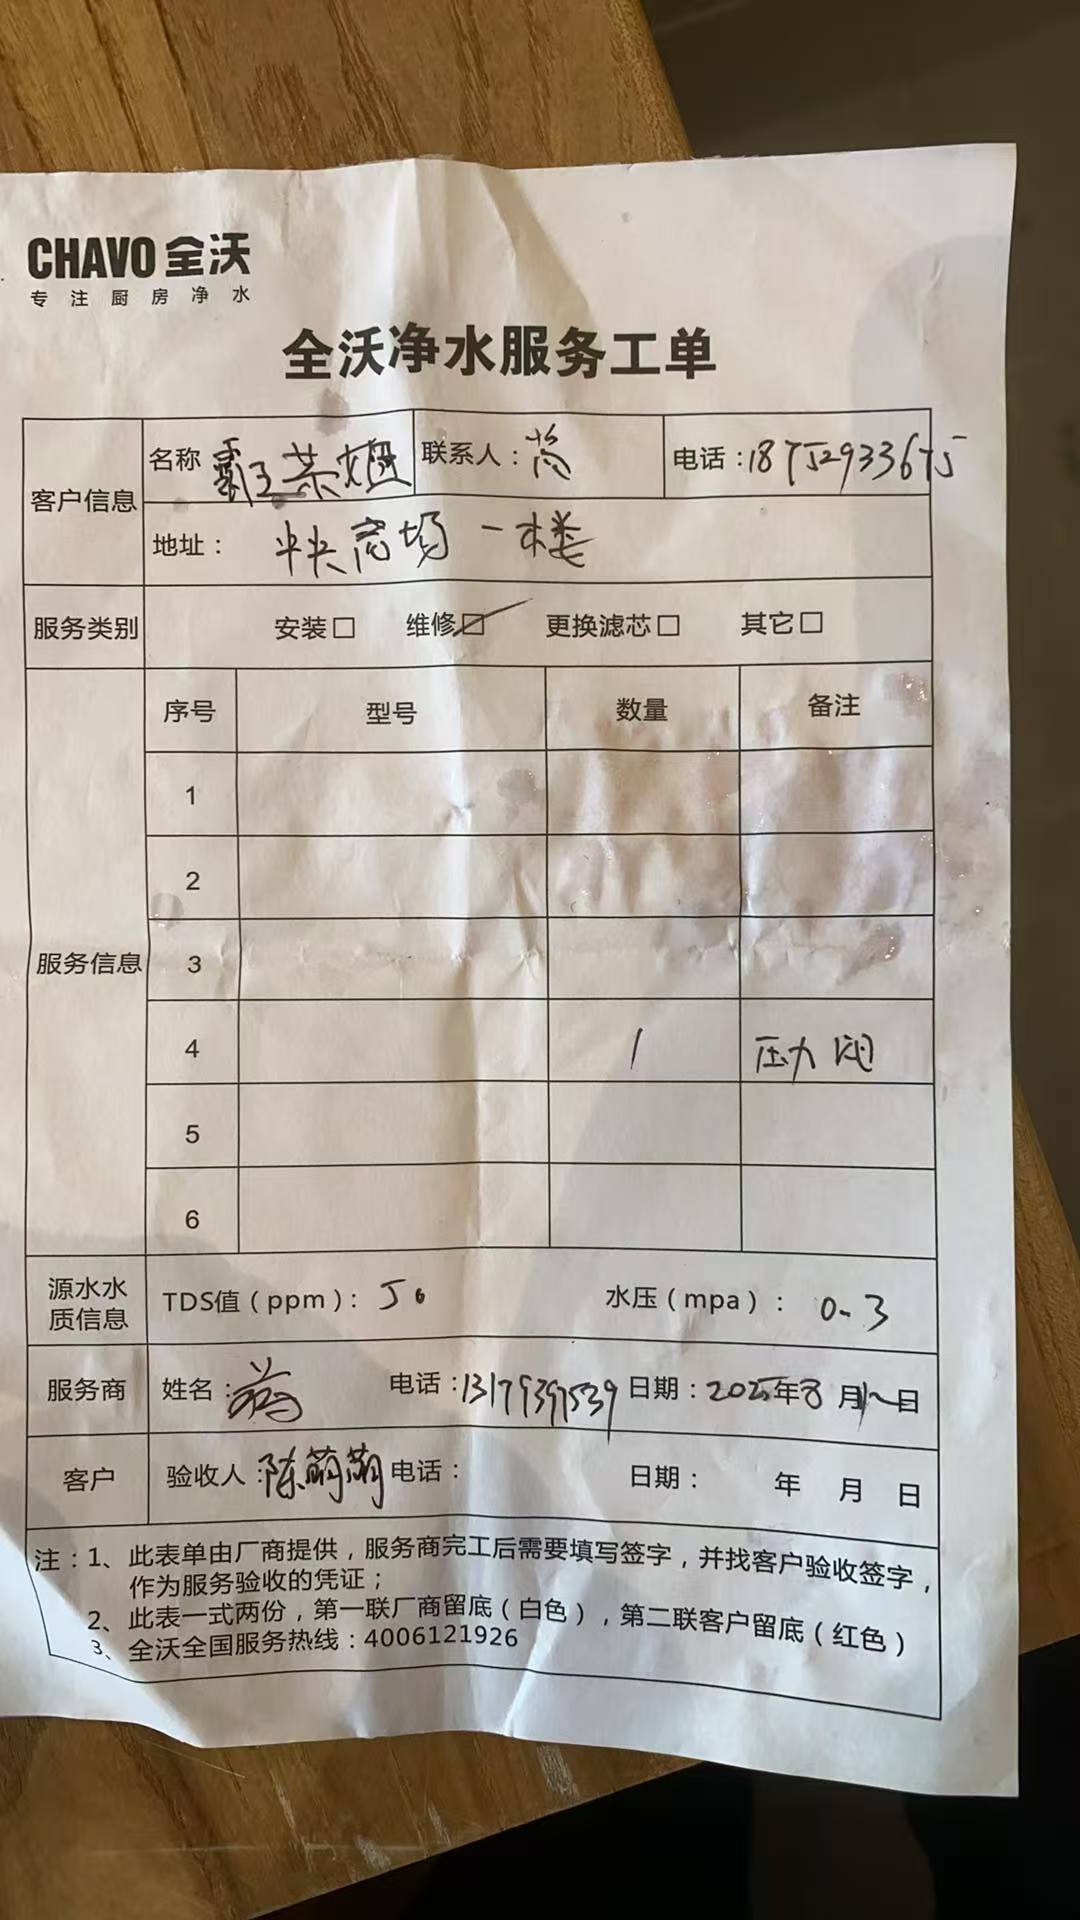 CHAVO 全沃
专注厨房净水
全沃净水服务工单
客户信息 名称 霸王茶姬 联系人： 电话：
地址： 中央商场一楼
服务类别 安装□ 维修☑ 更换滤芯□ 其它□
服务信息 序号 型号 数量 备注
1
2
3
4 1 压力阀
5
6
源水水质信息 TDS值（ppm）：50 水压（mpa）：0.3
服务商 姓名： 电话： 日期：2025年8月 日
客户 验收人：陈萌萌 电话： 日期： 年 月 日
注：1、此表单由厂商提供，服务商完工后需要填写签字，并找客户验收签字，
作为服务验收的凭证；
2、此表一式两份，第一联厂商留底（白色），第二联客户留底（红色）
3、全沃全国服务热线：4006121926